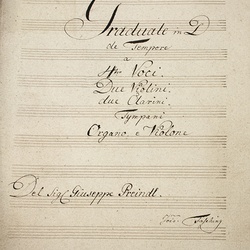 Graduale in D
de Tempore
a
4tro Voci.
Due Violini.
due Clarini.
Tympani
Organo e Violone
Del Sigl: Giuseppe Preindl.